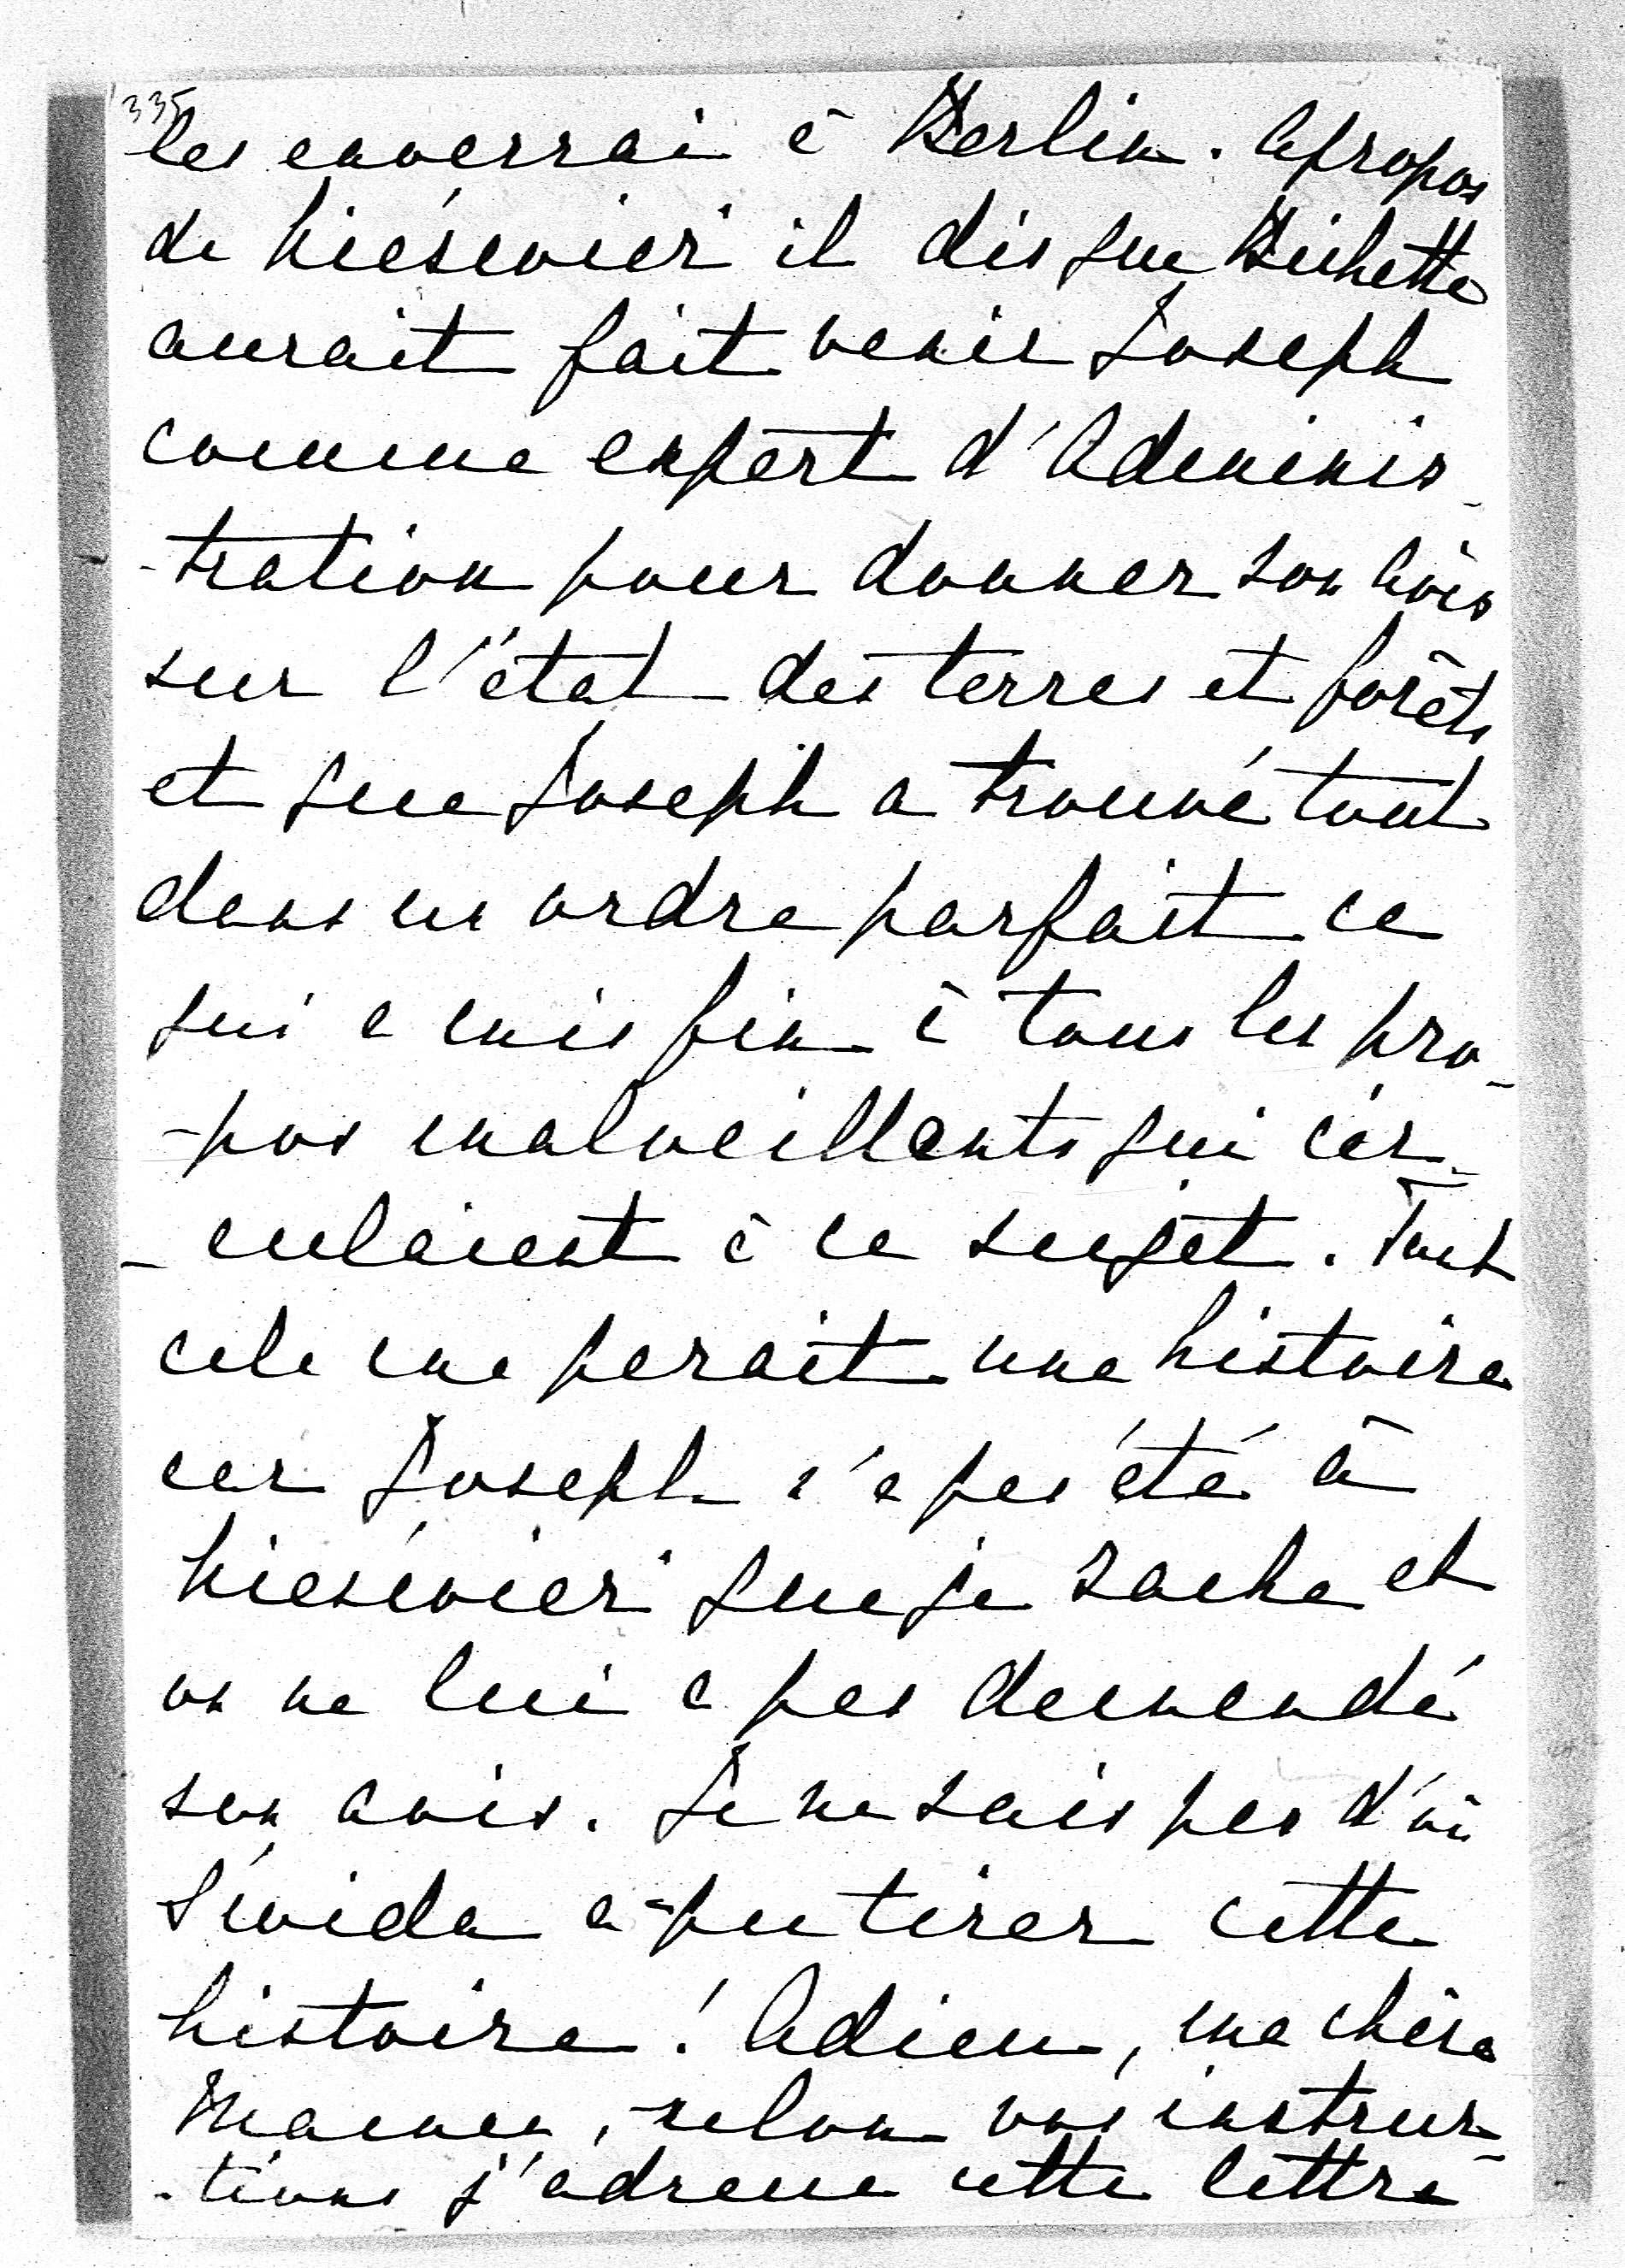 335
les enverrai à Berlin. Apropos
de Niéswież il dis que Bichette
aurait fait venir Joseph
comme expert d'Adminis-
-tration pour donner son avis
sur l'état des terres et forêts
et que Joseph a trouvé tout
dans un ordre parfait ce
qui a mis fin à tous les pro-
-pos malveillants qui cir-
-culaient à ce sujet. Tout
cela me parait une histoire
car Joseph n'a pas été à
Niéswież que je sache et
on ne lui a pas demandé
son avis. Je ne sais pas d'où
a pu tirer cette
histoire! Adieu, ma chère
Maman, selon vos instruc-
-tions j'adresse cette lettre